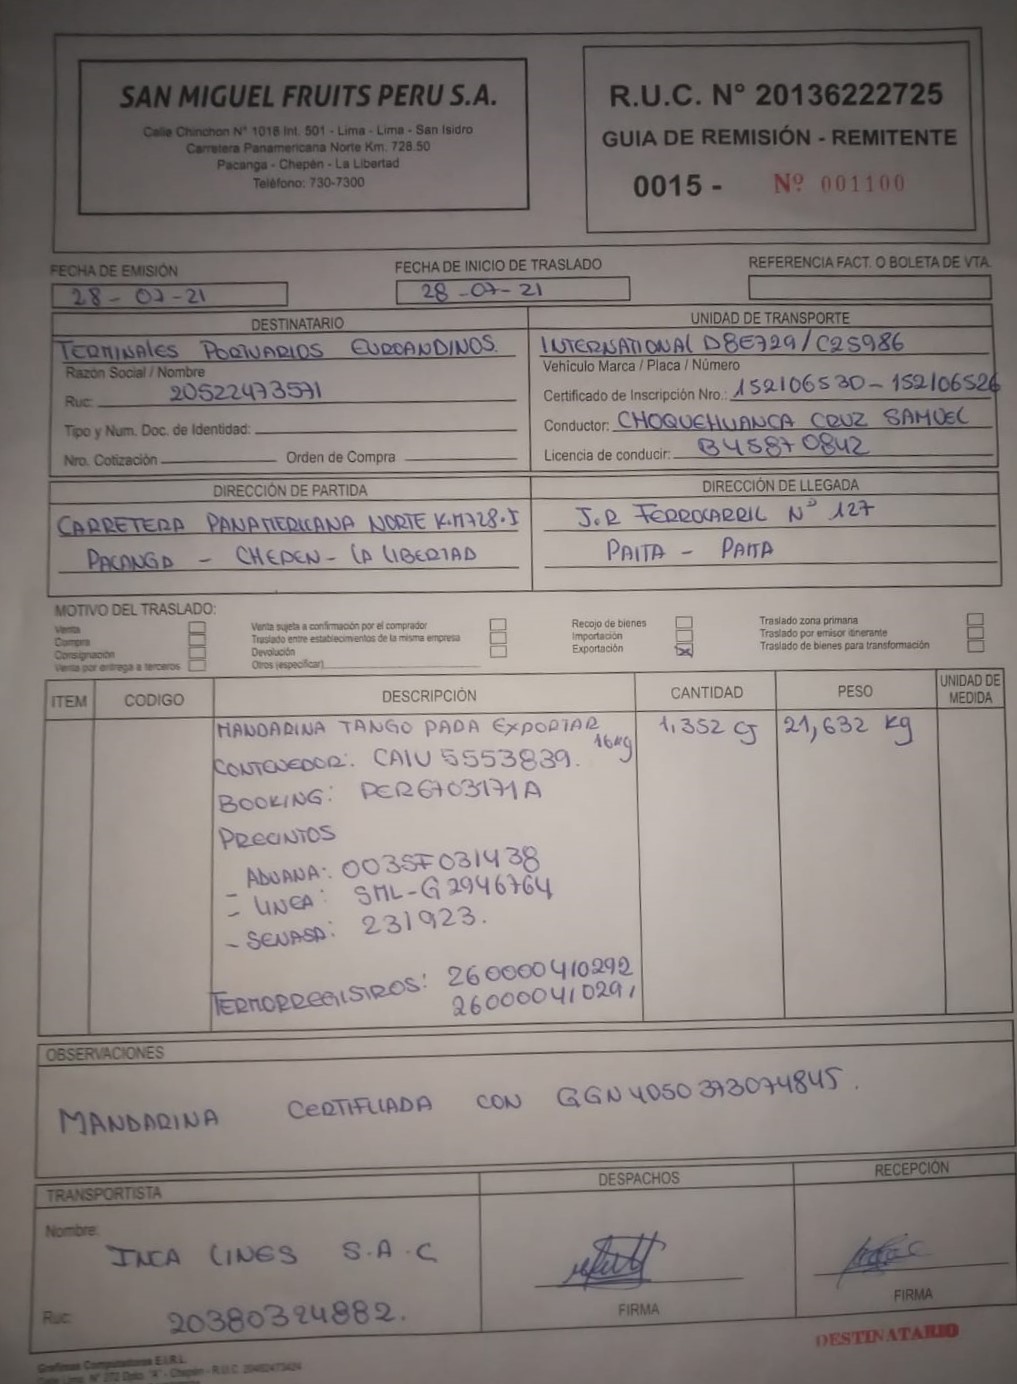 SAN MIGUEL FRUITS PERU S.A.
Calle Chinchon Nº 1018 Int. 501 - Lima - Lima - San Isidro
Carretera Panamericana Norte Km. 728.50
Pacanga - Chepén - La Libertad
Teléfono: 730-7300
R.U.C. N° 20136222725
GUIA DE REMISIÓN - REMITENTE
0015 - Nº 001100
FECHA DE EMISIÓN
28-07-21
FECHA DE INICIO DE TRASLADO
28-07-21
REFERENCIA FACT. O BOLETA DE VTA.
DESTINATARIO
TERMINALES PORTUARIOS EUROANDINOS.
Razón Social / Nombre
Ruc: 20522473571
Tipo y Num. Doc. de Identidad:
Nro. Cotización Orden de Compra
UNIDAD DE TRANSPORTE
INTERNATIONAL D8E729/C2S986
Vehículo Marca / Placa / Número
Certificado de Inscripción Nro.: 152106530-152106526
Conductor: CHOQUEHUANCA CRUZ SAMUEL
Licencia de conducir: B45870842
DIRECCIÓN DE PARTIDA
CARRETERA PANAMERICANA NORTE K.M728.5
PACANGA - CHEPEN - LA LIBERTAD
DIRECCIÓN DE LLEGADA
J.R FERROCARRIL Nº 127
PAITA - PAITA
MOTIVO DEL TRASLADO:
Venta
Compra
Consignación
Venta por entrega a terceros
Venta sujeta a confirmación por el comprador
Traslado entre establecimientos de la misma empresa
Devolución
Otros (especificar)
Recojo de bienes
Importación
Exportación X
Traslado zona primaria
Traslado por emisor itinerante
Traslado de bienes para transformación
ITEM CODIGO DESCRIPCIÓN CANTIDAD PESO UNIDAD DE MEDIDA
MANDARINA TANGO PARA EXPORTAR 16kg 1,352 CJ 21,632 kg
CONTENEDOR: CAIU 5553839.
BOOKING: PER6703171A
PRECINTOS
- ADUANA: 003SF031438
- LINEA: SML-G2946764
- SENASA: 231923.
TERMORREGISTROS: 260000410292
260000410291
OBSERVACIONES
MANDARINA CERTIFICADA CON GGN 4050373074845.
TRANSPORTISTA
Nombre:
INCA LINES S.A.C
Ruc: 20380324882.
DESPACHOS
FIRMA
RECEPCIÓN
FIRMA
DESTINATARIO